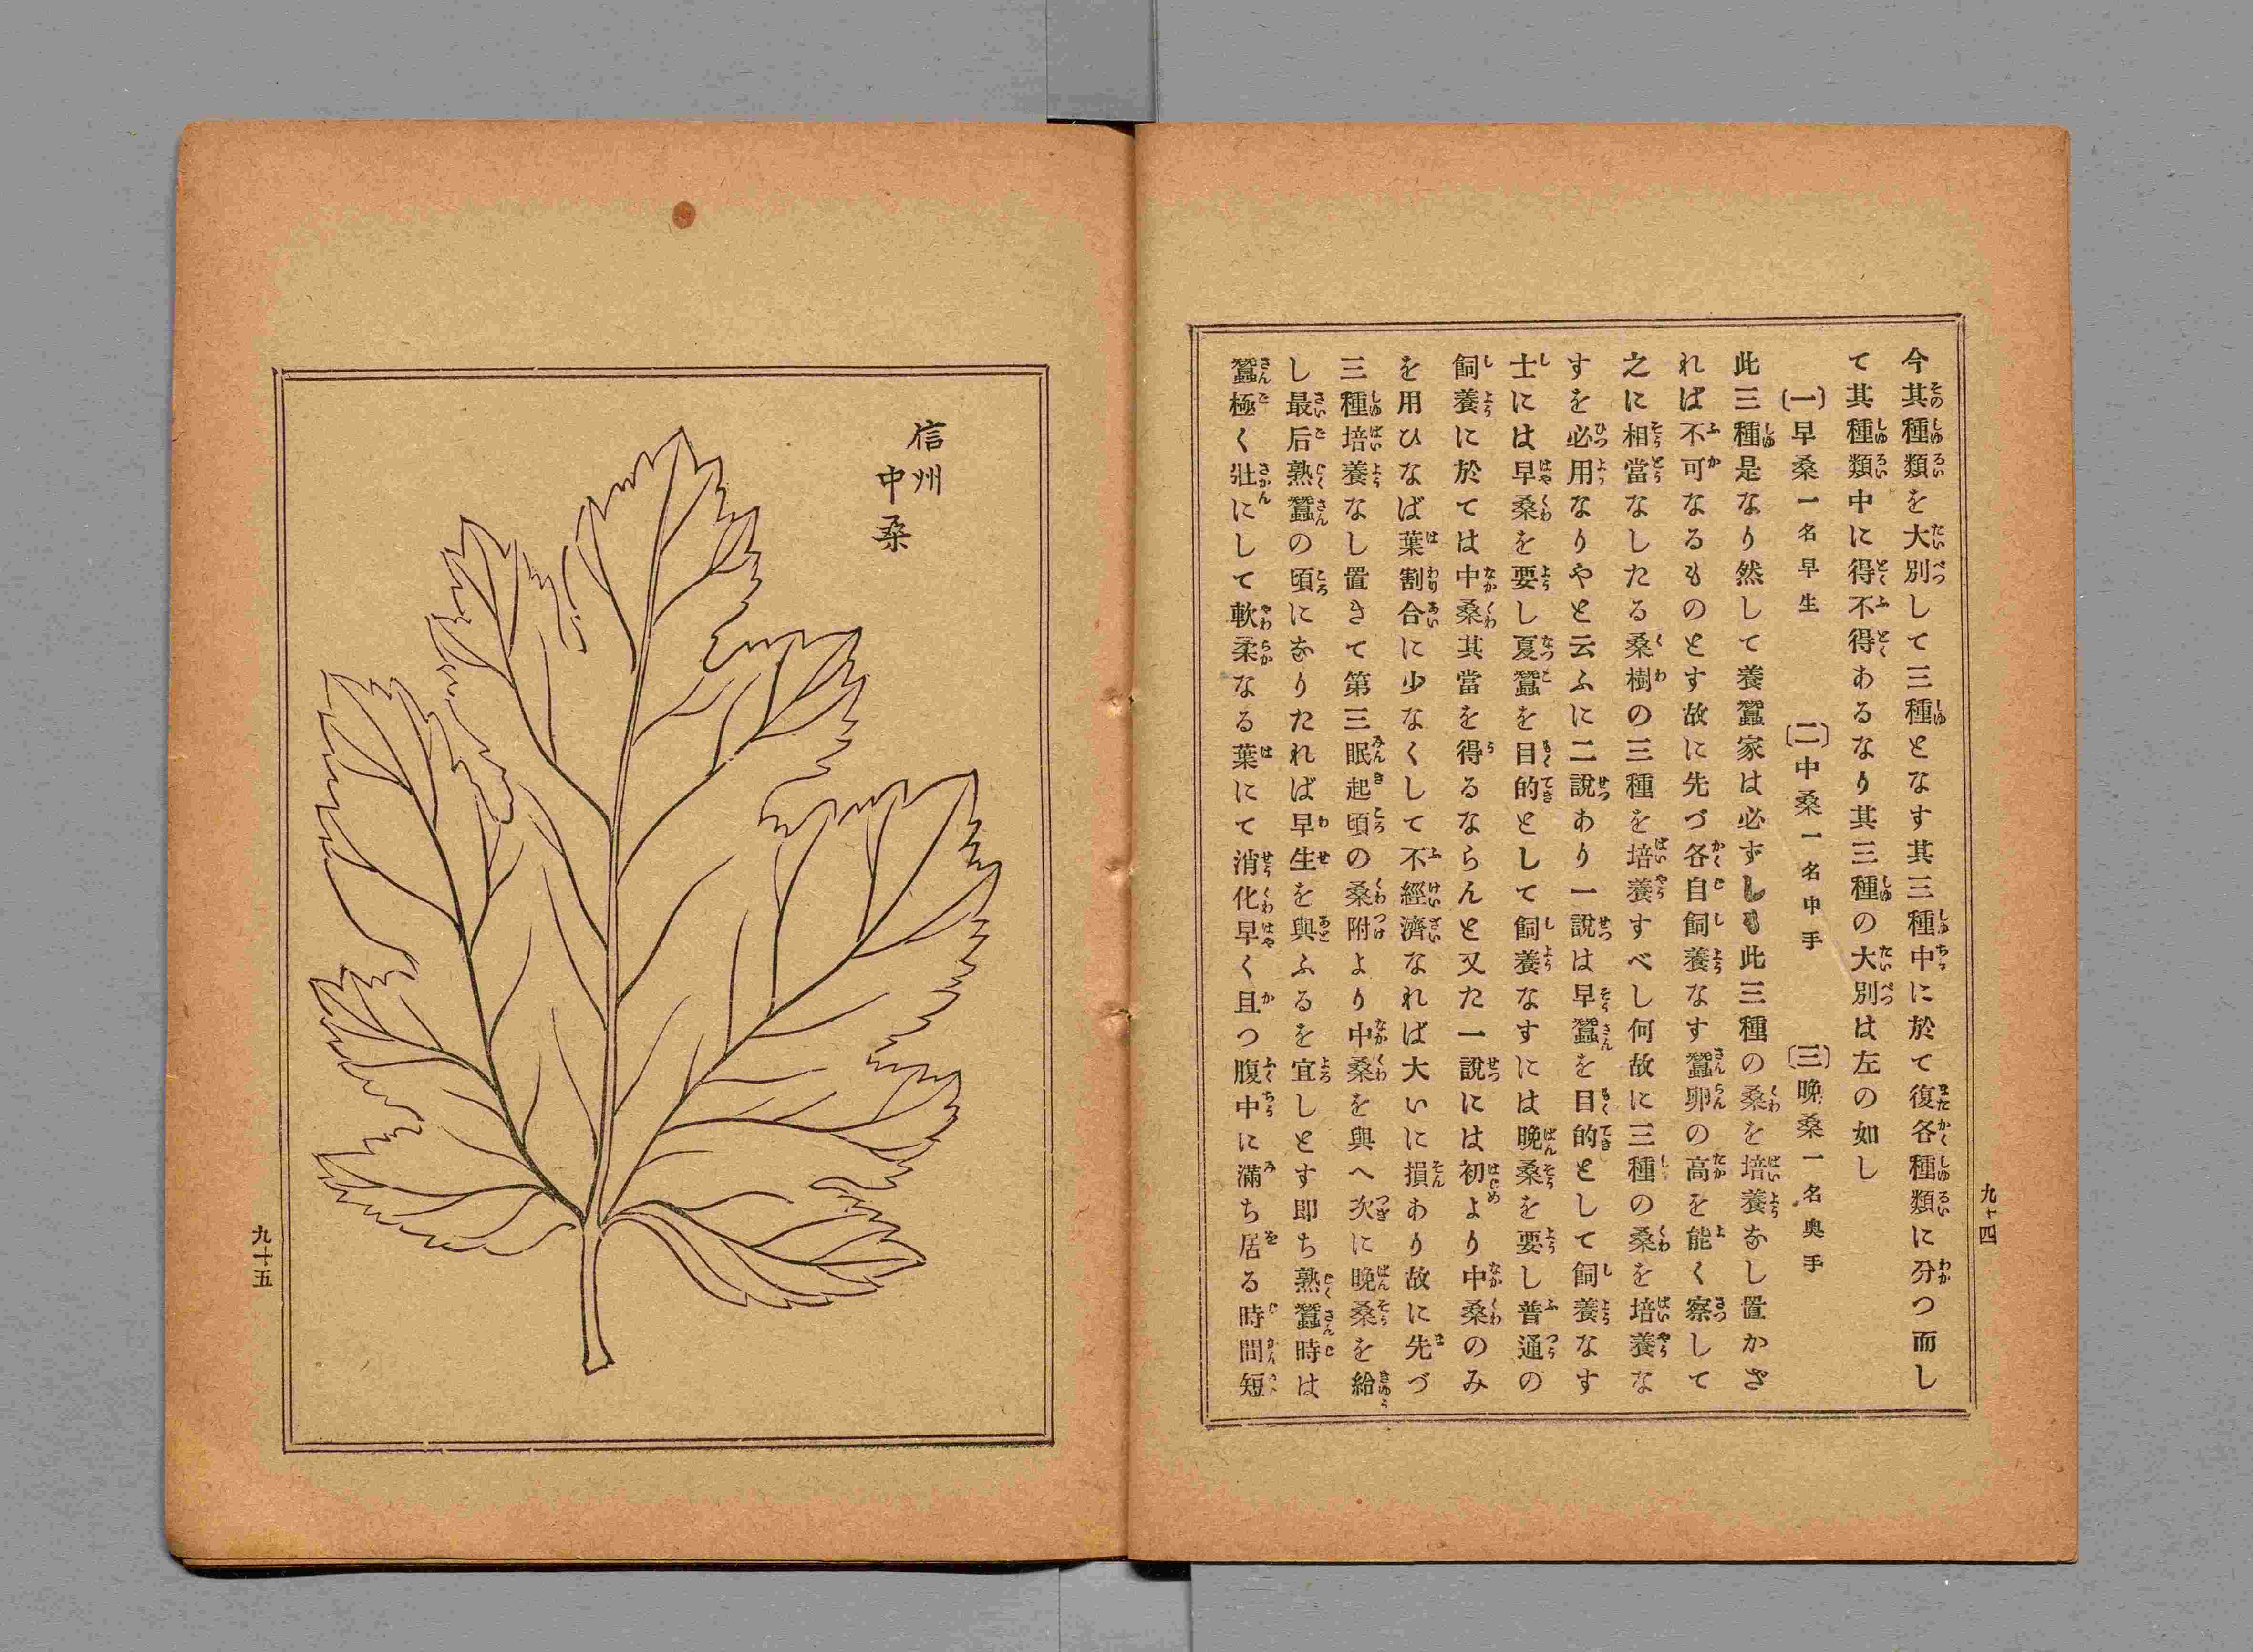 今其種類を大別して三種となす其三種中に於て復各種類に分つ而し
て其種類中に得不得あるなり其三種の大別は左の如し
〔一〕早桑一名早生　〔二〕中桑一名中手　〔三〕晩桑一名奥手
此三種是なり然して養蠶家は必ずしも此三種の桑を培養なし置かざ
れば不可なるものとす故に先づ各自飼養なす蠶卵の高を能く察して
之に相當なしたる桑樹の三種を培養すべし何故に三種の桑を培養な
すを必用なりやと云ふに二說あり一說は早蠶を目的として飼養なす
士には早桑を要し夏蠶を目的として飼養なすには晩桑を要し普通の
飼養に於ては中桑其當を得るならんと又た一說には初より中桑のみ
を用ひなば葉割合に少なくして不經濟なれば大いに損あり故に先づ
三種培養なし置きて第三眠起頃の桑附より中桑を與へ次に晩桑を給
し最后熟蠶の頃になりたれば早生を與ふるを宜しとす即ち熟蠶時は
蠶極く壯にして軟柔なる葉にて消化早く且つ腹中に滿ち居る時間短
九十四
信州
中桑
九十五